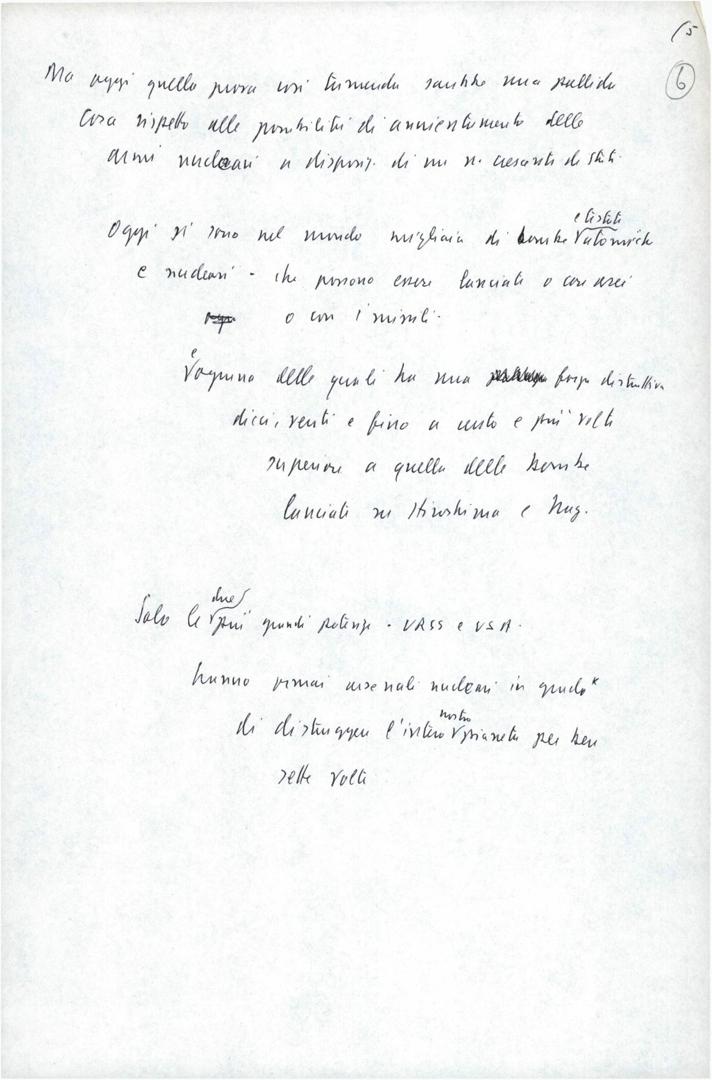 15
6
Ma oggi quella prova così tremenda sarebbe una pallida
cosa rispetto alle possibilità di annientamento delle
armi nucleari a disposiz. di un n. crescente di stati.
Oggi vi sono nel mondo migliaia di bombe e testate atomiche
e nucleari - che possono essere lanciate o con aerei
o con i missili.
e ognuna delle quali ha una forza distruttiva
dieci, venti e fino a cento e più volte
superiore a quella delle bombe
lanciate su Hiroshima e Nag.
Solo le due più grandi potenze - URSS e USA -
hanno ormai arsenali nucleari in grado
di distruggere l'intero nostro pianeta per ben
sette volte